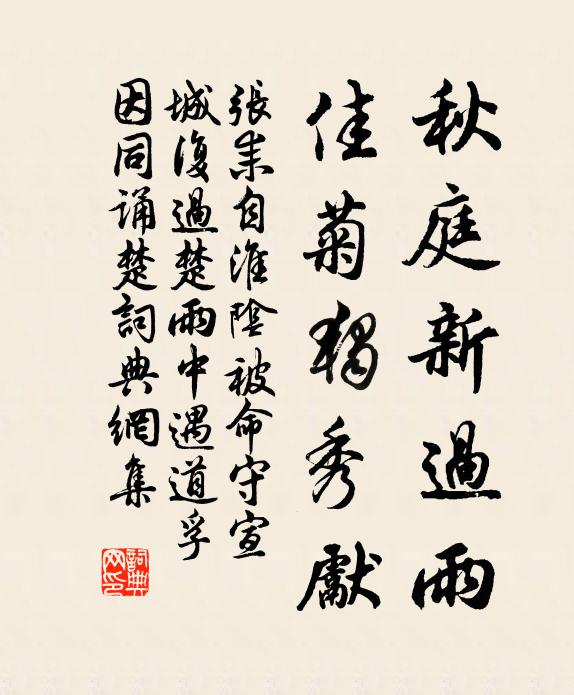 秋庭新過雨
佳菊獨秀獻
張耒自淮陰被命守宣
城復過楚雨中遇道孚
因同誦楚詞典網集
詞典網印